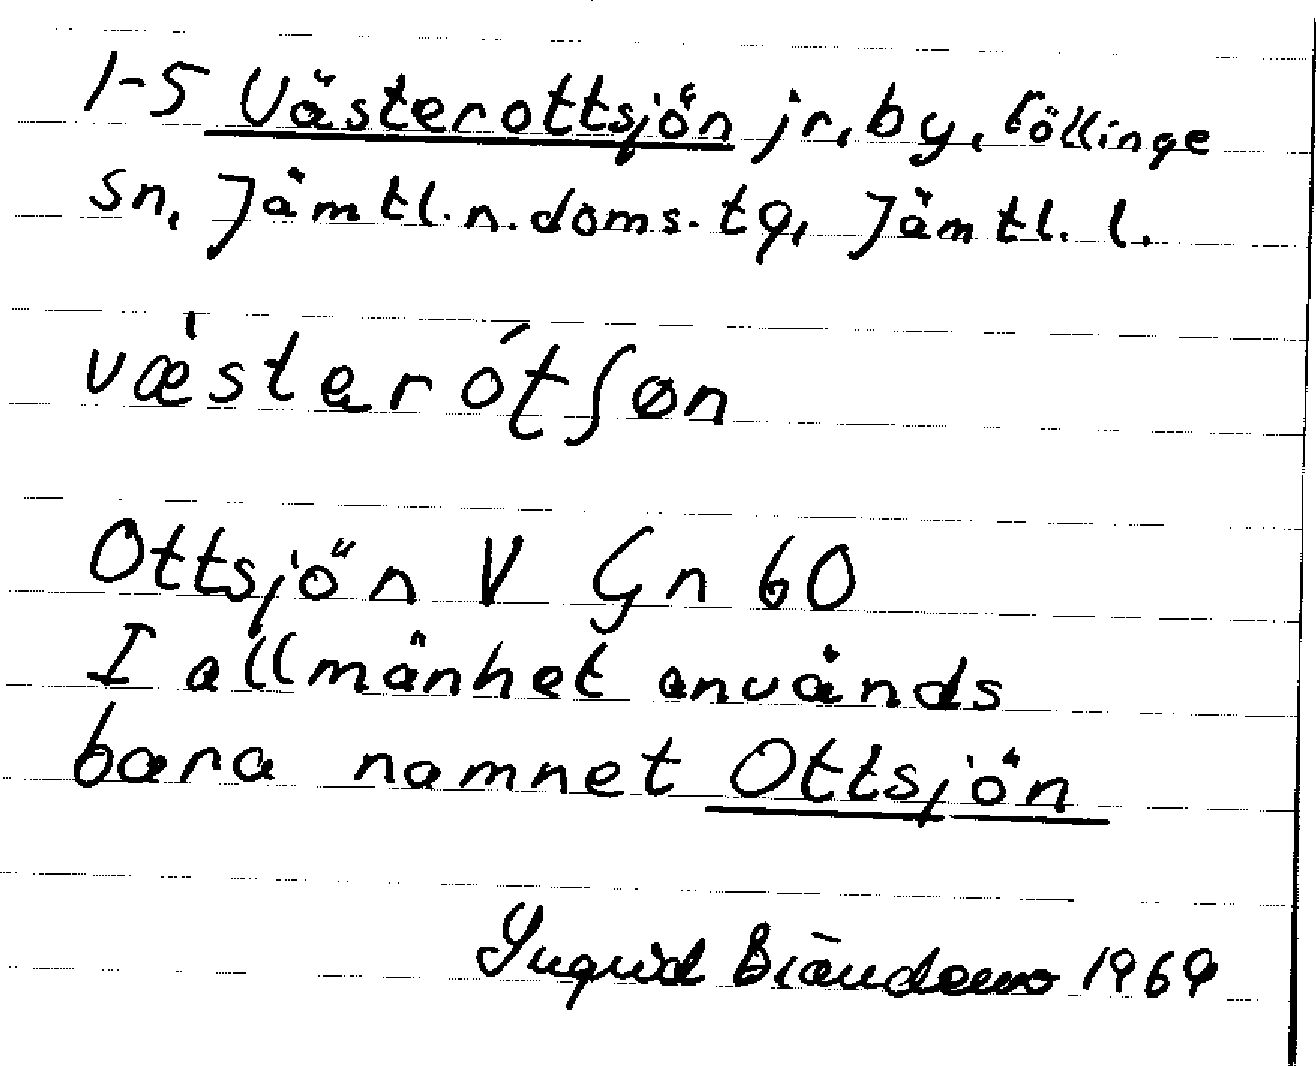 1-5 Västerottsjön jr, by, Föllinge
sn, Jämtl. n. doms. tg, Jämtl. l.
væ̀sterótʃøn
Ottsjön V Gn 60
I allmänhet används
bara namnet Ottsjön
Ingrid Brändemo 1969